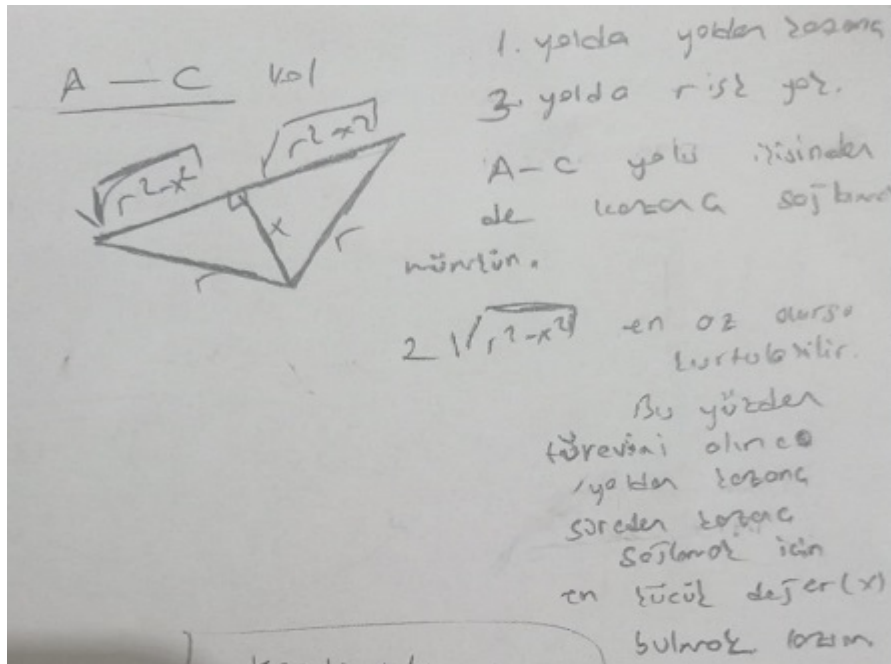 A — C yol
√r²-x²
√r²-x²
x
r
r
1. yolda yoldan kazanç
3. yolda risk yok.
A-C yolu ikisinden
de kazanç sağlamak
mümkün.
2√r²-x² en az olursa
kurtulabilir.
Bu yüzden
türevini alınca
yoldan kazanç
süreden kazanç
sağlamak için
en küçük değer(x)
bulmak lazım